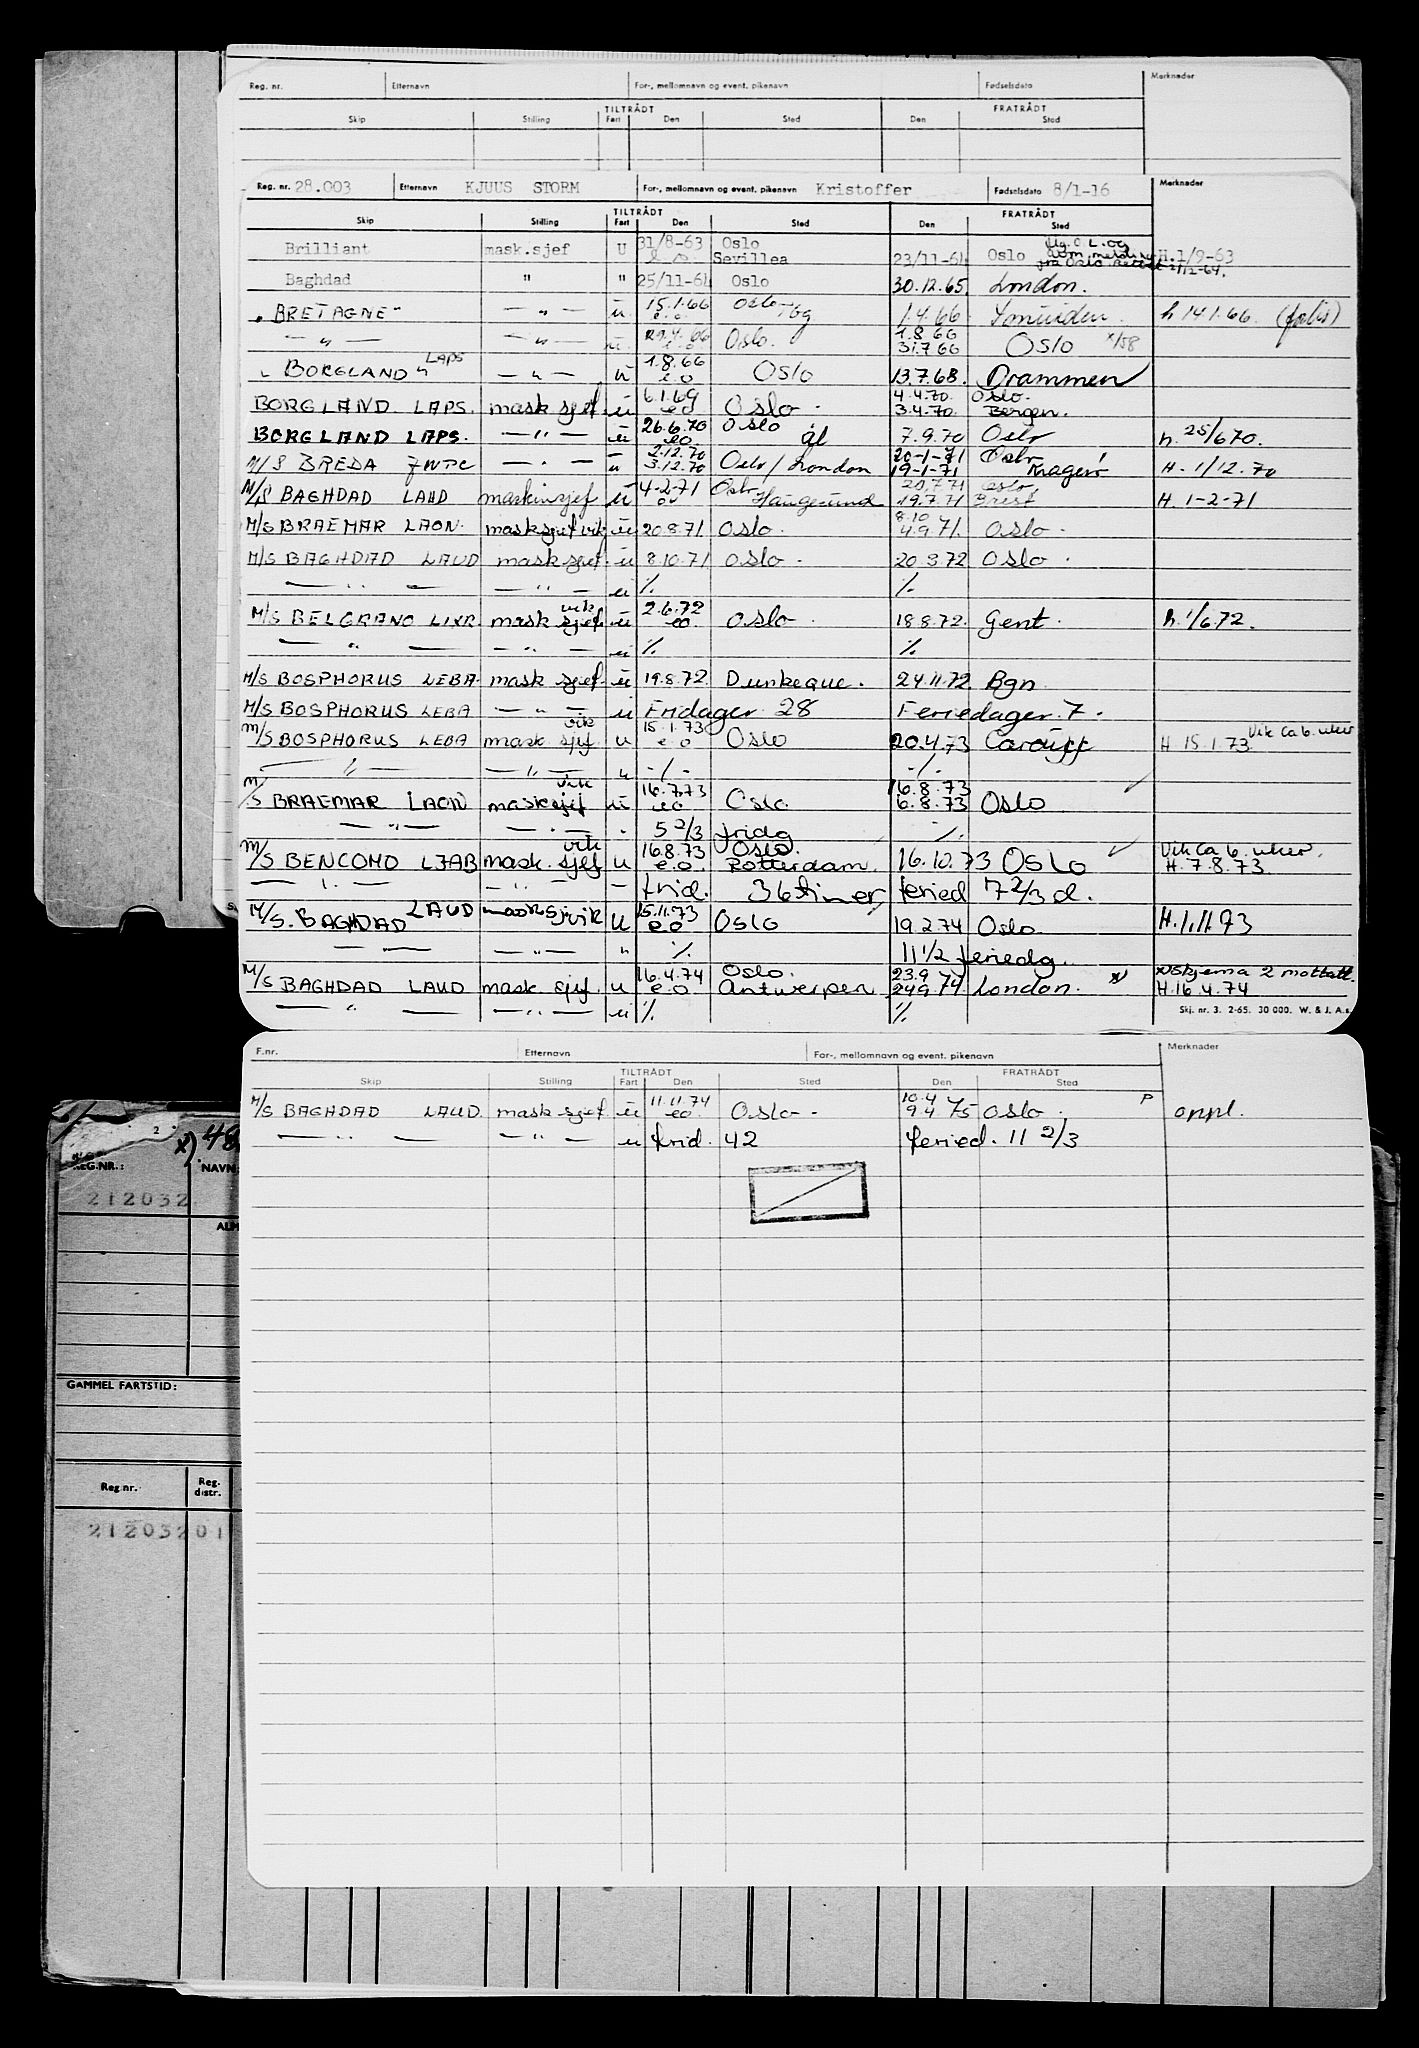 Reg. nr. Etternavn For-, mellomnavn og event. pikenavn Fødselsdato Merknader
TILTRÅDT FRATRÅDT
Skip Stilling Fart Den Sted Den Sted
Reg. nr. 28.003 Etternavn KJUUS STORM For-, mellomnavn og event. pikenavn Kristoffer Fødselsdato 8/1-16 Merknader
TILTRÅDT FRATRÅDT
Skip Stilling Fart Den Sted Den Sted
Brilliant mask.sjef U 31/8-63 Oslo
Sevillea 23/11-64 Oslo H.1/9-63
Baghdad " " 25/11-64 Oslo 30.12.65. London.
"BRETAGNE" — " — ü 15.1.66 Oslo 1.4.66 h 14.1.66.
e.o
— " — — " — ü 29.4.66 Oslo. 1.8.66
e.o 31.7.66 Oslo x/58
"BORGLAND" LAPS — " — ü 1.8.66
e.o Oslo 13.7.68. Drammen
BORGLAND LAPS. mask sjef ü 6.1.69 Oslo. 4.4.70. Oslo.
eo 3.4.70. Bergen.
BORGLAND LAPS. — " — ü 26.6.70 Oslo 7.9.70 Oslo h. 25/6 70.
eo ål
M/S BREDA — " — ü 2.12.70
3.12.70 Oslo / London 20-1-71 Oslo
19-1-71 Kragerø H. 1/12.70
M/S BAGHDAD LAUD maskinsjef ü 4-2-71 Oslo 20.7.71 Oslo
Haugesund 19.7.71 Brest H. 1-2-71
M/S BRAEMAR LAON. masksjef vik ü 20.8.71 Oslo. 8.10
4.9.71. Oslo.
M/S BAGHDAD LAUD mask sjef. ü 8.10.71 Oslo. 20.3.72 Oslo.
— " — — " — ü ./. ./.
M/S BELGRANO mask sjef. vik ü 2.6.72
eo Oslo. 18.8.72. Gent. h. 1/6.72.
— " — — " — ü ./. ./.
M/S BOSPHORUS LEBA. mask sjef. ü 19.8.72. Dunkeque. 24.11.72. Bgn.
M/S BOSPHORUS LEBA — " — ü Fridager 28 Feriedager. 7.
M/S BOSPHORUS LEBA mask. sjef vik u 15.1.73
e.o Oslo 20.4.73 Cardiff H 15.1.73 Vik Ca 6. uker
— " — — " — " -/- -/-
M/S BRAEMAR LAON mask sjef vik ü 16.7.73
eo Oslo. 16.8.73
6.8.73 Oslo
— " — — " — " 5 2/3 fridg ./.
M/S BENCOMO LJAB mask. sjef vik u 16.8.73 Oslo.
e.o. Rotterdam. 16.10.73 Oslo Vik Ca 6. uker.
H. 7.8.73
— " — — " — – frid. 36 timer feried 7 2/3 d.
M/S. BAGHDAD LAUD masksj vik u 15.11.73
e.o Oslo 19.2.74 Oslo. H. 1.11.73
— " — " ./. 11 1/2 feriedg.
M/S BAGHDAD LAUD mask. sjef. u 16.4.74 Oslo.
e.o. Antwerpen 23.9
24.9.74. London. x) x) Skjema 2 mottatt.
H.16.4.74
— " — — " — ü ./. ./.
Skj. nr. 3. 2-65. 30 000. W. & J. A.s
F.nr. Etternavn For-, mellomnavn og event. pikenavn Merknader
TILTRÅDT FRATRÅDT
Skip Stilling Fart Den Sted Den Sted
M/S BAGHDAD LAUD. mask sjef. ü 11.11.74
eo Oslo - 10.4
9.4.75 Oslo. P oppl.
— " — — " — ü frid. 42 feried. 11 2/3
2 x) 48
REG.NR.: NAVN
212032
ALM
GAMMEL FARTSTID:
Reg.nr. Reg. distr.
21203201